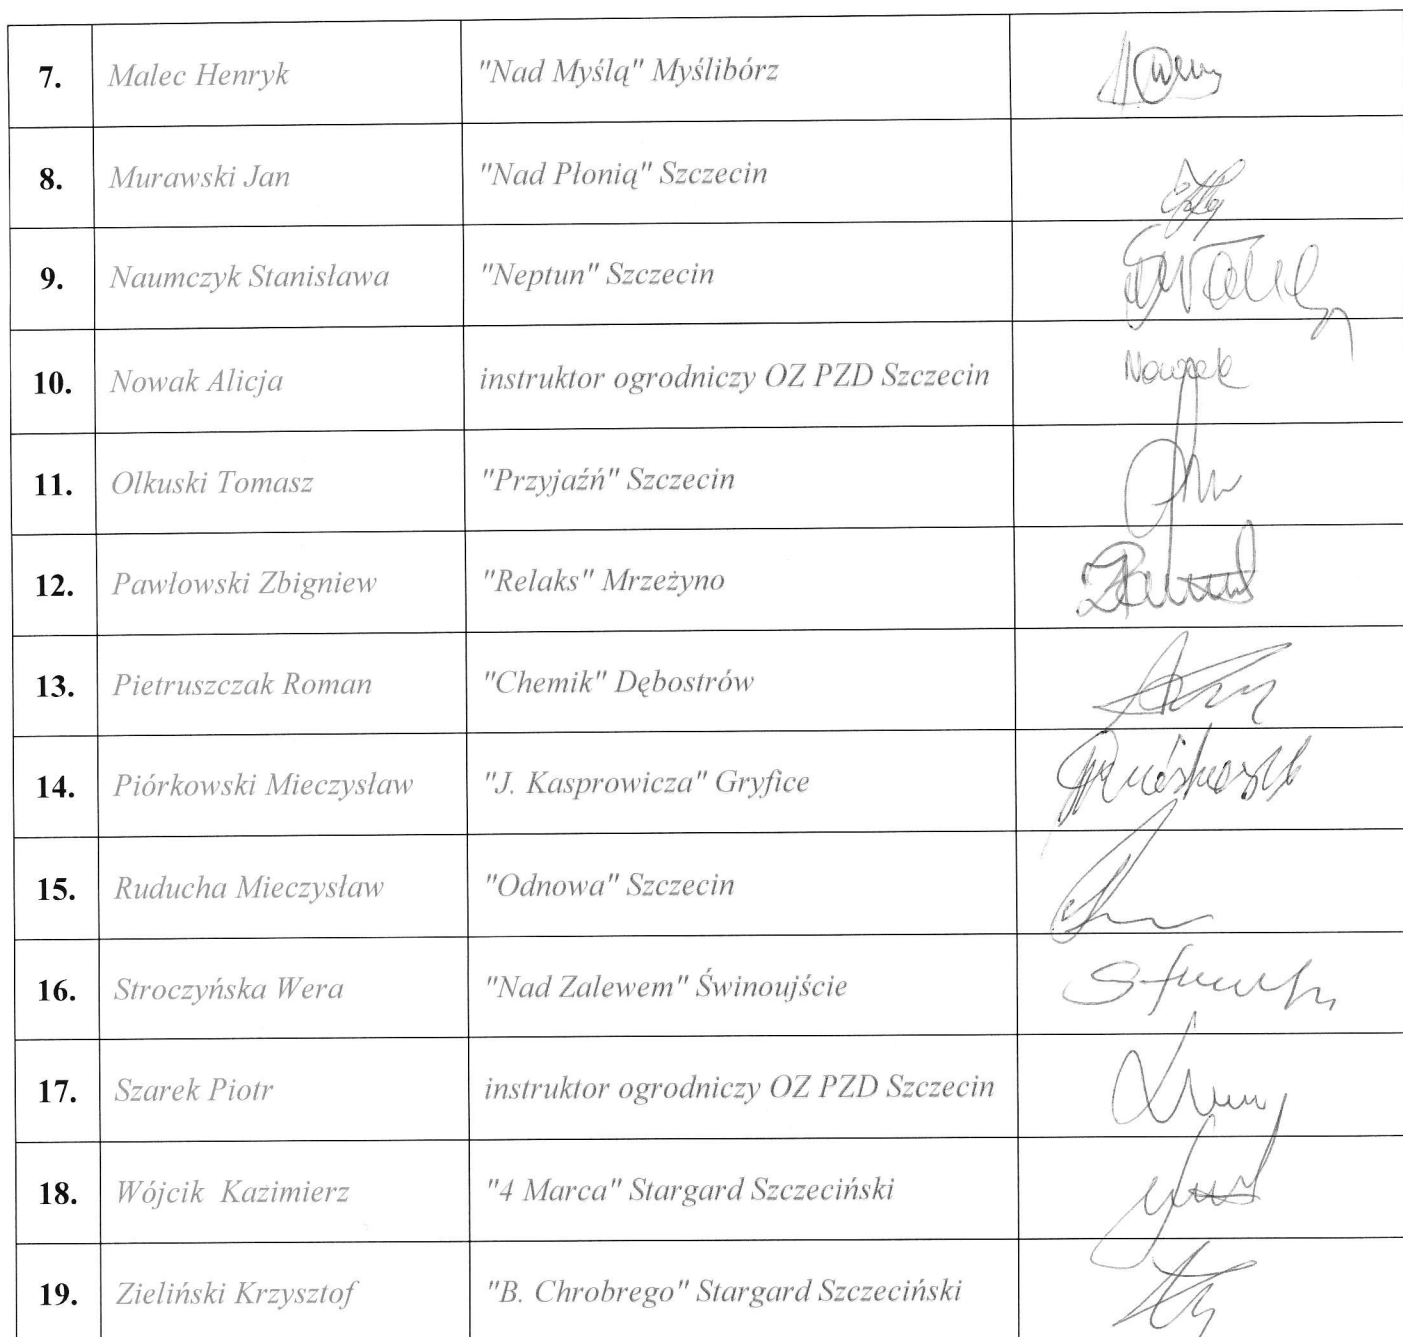 7. Malec Henryk "Nad Myślą" Myślibórz
8. Murawski Jan "Nad Płonią" Szczecin
9. Naumczyk Stanisława "Neptun" Szczecin
10. Nowak Alicja instruktor ogrodniczy OZ PZD Szczecin Nowak
11. Olkuski Tomasz "Przyjaźń" Szczecin
12. Pawłowski Zbigniew "Relaks" Mrzeżyno
13. Pietruszczak Roman "Chemik" Dębostrów
14. Piórkowski Mieczysław "J. Kasprowicza" Gryfice
15. Ruducha Mieczysław "Odnowa" Szczecin
16. Stroczyńska Wera "Nad Zalewem" Świnoujście
17. Szarek Piotr instruktor ogrodniczy OZ PZD Szczecin
18. Wójcik Kazimierz "4 Marca" Stargard Szczeciński
19. Zieliński Krzysztof "B. Chrobrego" Stargard Szczeciński